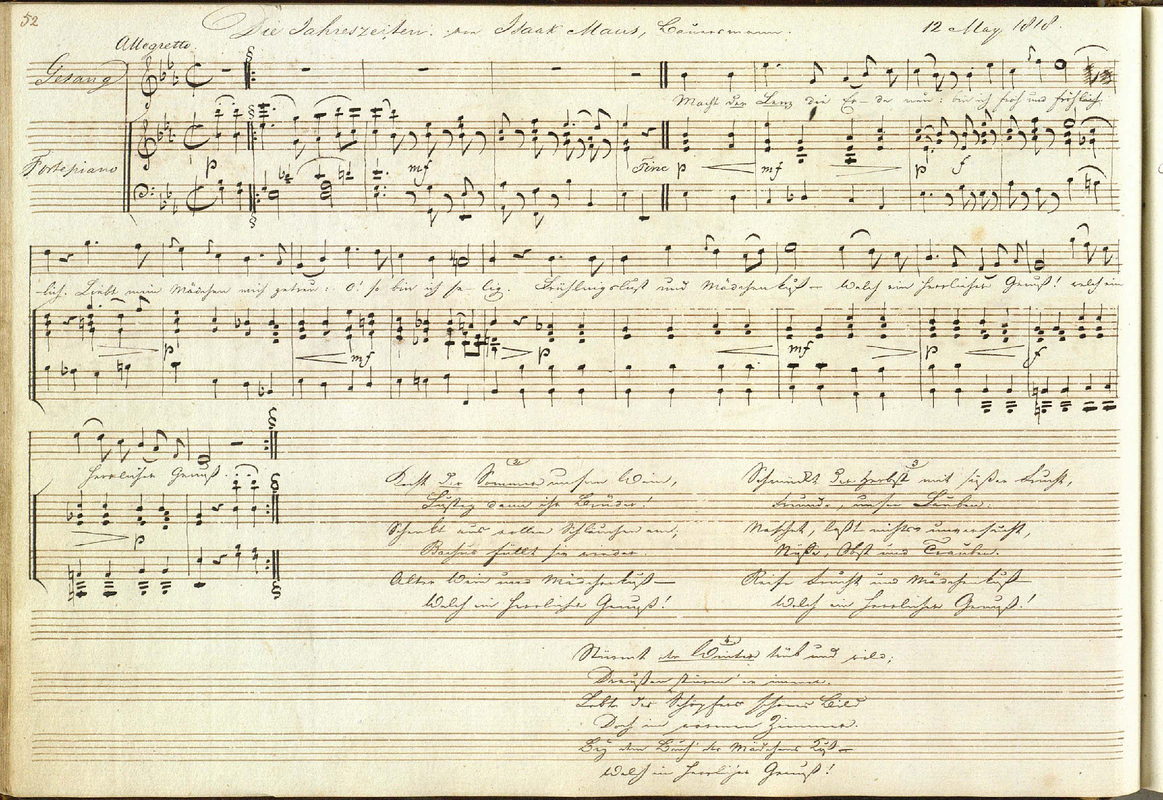 52
Die Jahreszeiten. von Isaak Maus, Bauersmann.
12 May 1818.
Allegretto.
Gesang
Macht der Lenz die Er- de neu: bin ich froh und fröhlich.
Fortepiano
p mf Fine p mf p f
-lich. Liebt mein Mädchen mich getreu: O! so bin ich se- lig. Frühlingslust und Mädchenkuß— Welch ein herrlicher Genuß! welch ein
p mf p mf p f
herrlicher Genuß.
p
2
Kocht der Sommer unsern Wein,
Lustig dann ihr Brüder!
Schenkt aus vollen Schläuchen ein,
Bachus füllt sie wieder.
Alter Wein und Mädchenkuß—
Welch ein herrlicher Genuß!
3
Schminkt der Herbst mit süßer Frucht,
Freunde, unsre Lauben.
Naschet, laßt nichts unversucht,
Nüße, Obst und Trauben.
Reife Frucht und Mädchenkuß—
Welch ein herrlicher Genuß!
4
Stürmt der Winter trüb und wild;
Draußen stürm' er immer.
Lebt des Schöpfers schönes Bild
Doch im warmen Zimmer.
Bey dem Buch des Mädchens Kuß—
Welch ein herrlicher Genuß!